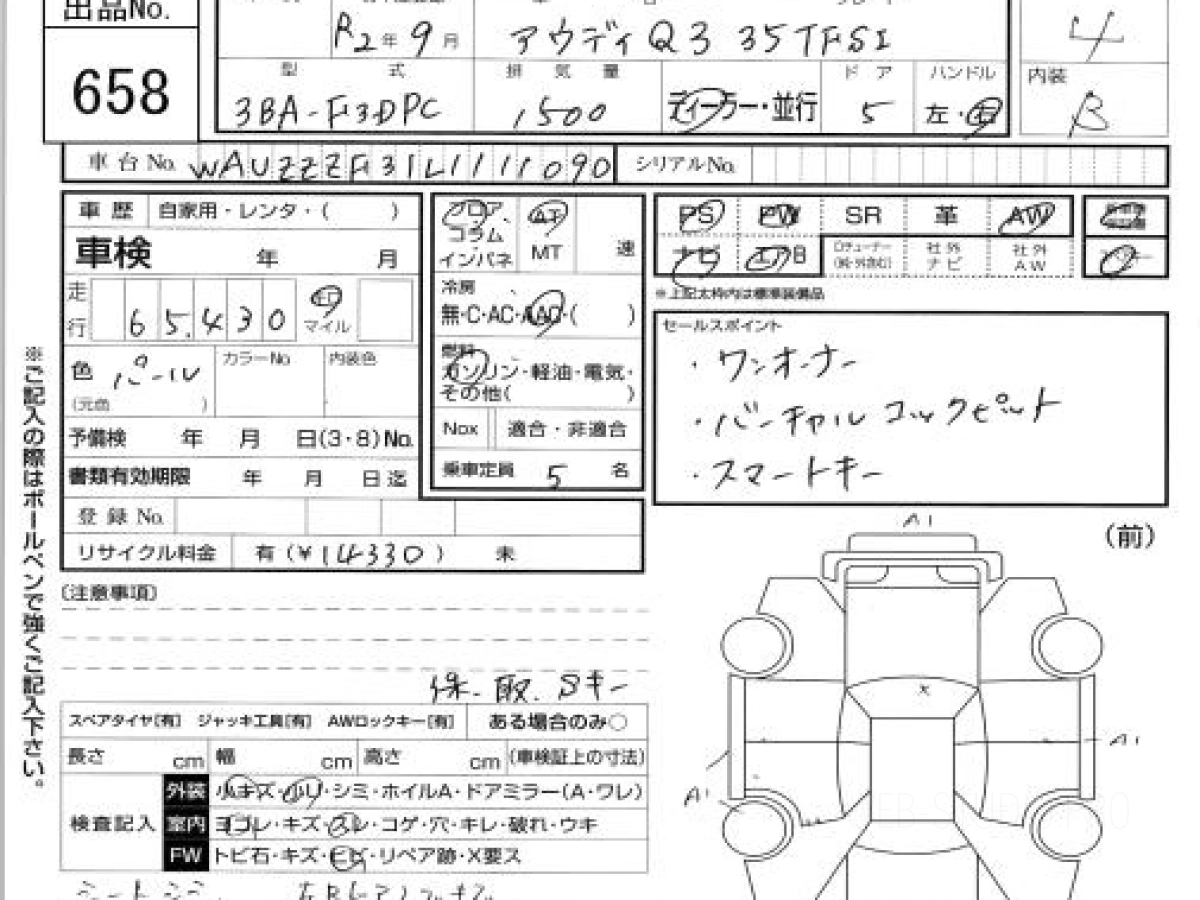 出品No.
658
R2年9月
アウディ Q3 35TFSI
4
型式
3BA-F3DPC
排気量
1500
ディーラー・並行
ドア
5
ハンドル
左・右
内装
B
車台No. WAUZZZF31L1111090
シリアルNo.
車歴 自家用・レンタ・( )
車検 年 月
走行 65,430 キロ マイル
色 パール
(元色 )
カラーNo
内装色
予備検 年 月 日(3・8)No.
書類有効期限 年 月 日迄
登録No.
リサイクル料金 有(¥14330) 未
フロア、
コラム
インパネ
AT
MT
速
冷房
無・C・AC・AAC・( )
燃料
ガソリン・軽油・電気・
その他( )
Nox 適合・非適合
乗車定員 5 名
PS PW SR 革 AW
ナビ エアB
社外ナビ
社外AW
※上記太枠内は標準装備品
セールスポイント
・ワンオーナー
・バーチャルコックピット
・スマートキー
※ご記入の際はボールペンで強くご記入下さい。
(注意事項)
保.取.Sキー
スペアタイヤ[有] ジャッキ工具[有] AWロックキー[有] ある場合のみ○
長さ cm 幅 cm 高さ cm (車検証上の寸法)
検査記入
外装 小キズ・小U・シミ・ホイルA・ドアミラー(A・ワレ)
室内 ヨゴレ・キズ・スレ・コゲ・穴・キレ・破れ・ウキ
FW トビ石・キズ・ヒビ・リペア跡・X要ス
(前)
A1
X
A1
A1